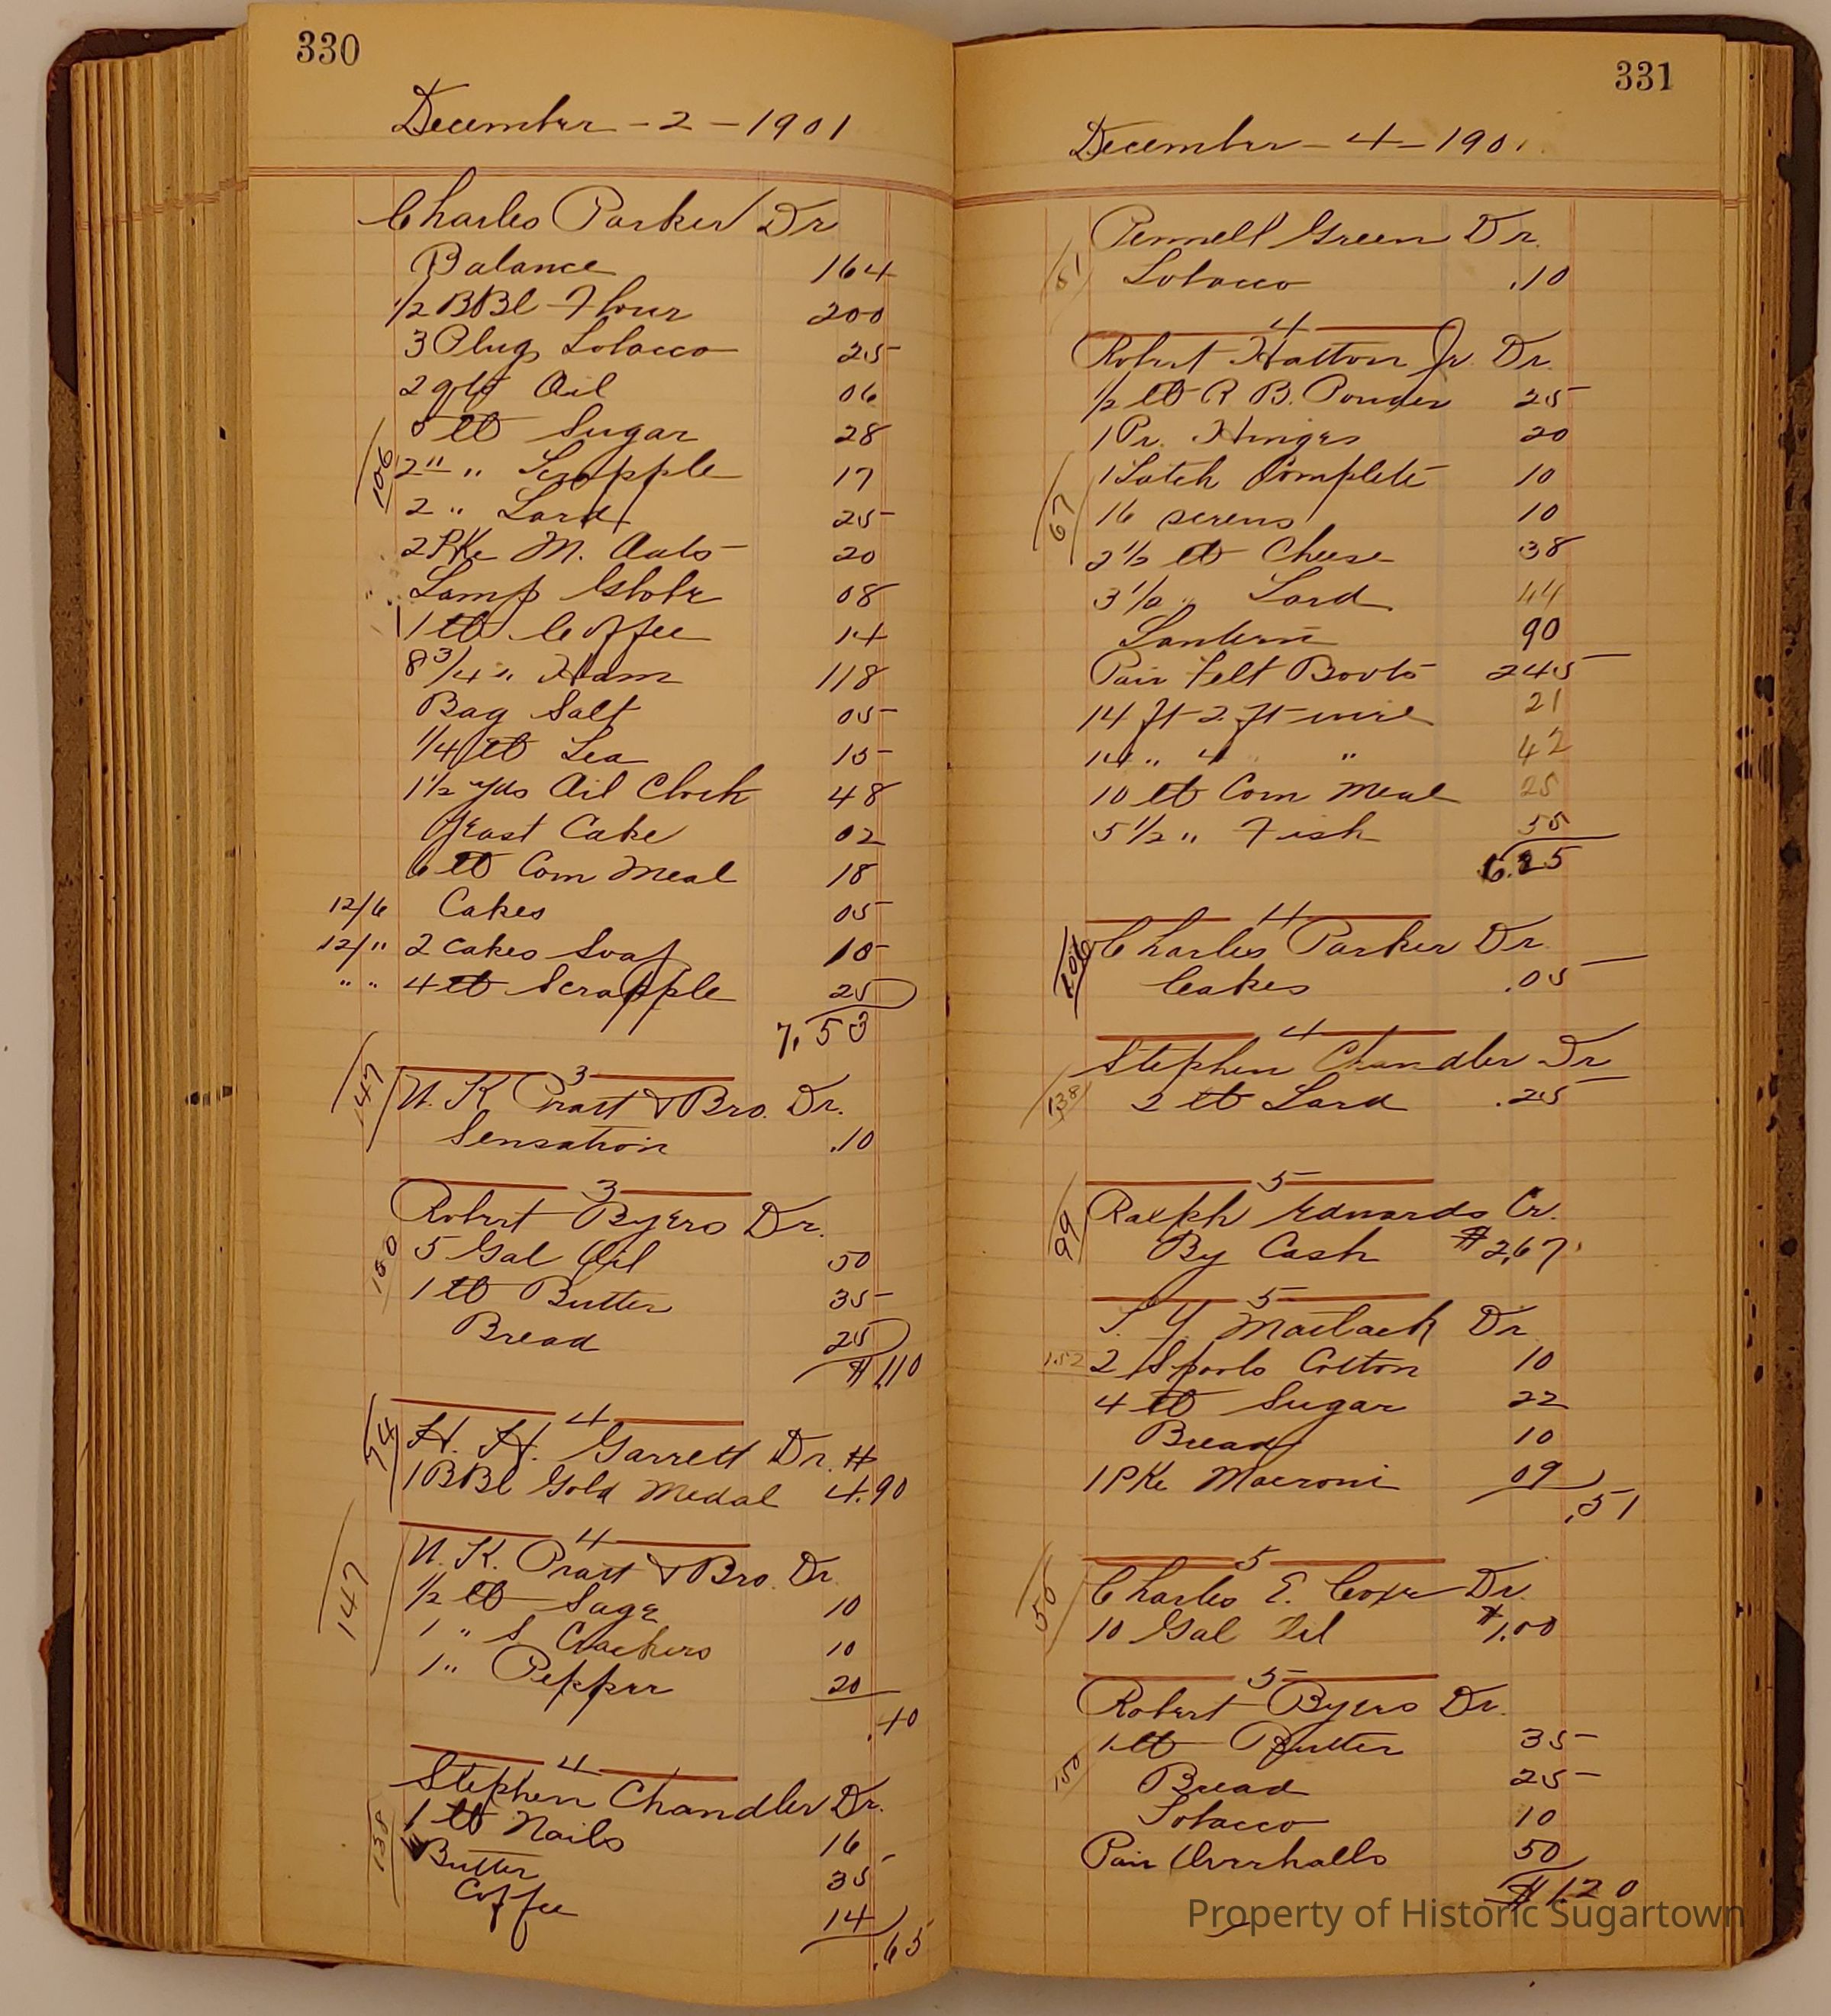 330
December - 2 - 1901
Charles Parker Dr
Balance 164
1/2 BBl Flour 200
3 Plug Tobacco 25
2 qts Oil 06
5 lb Sugar 28
106 2 " " Scrapple 17
2 " Lard 25
2 PKe M. Oats 20
Lamp Globe 08
1 lb Coffee 14
8 3/4 " Ham 118
Bag Salt 05
1/4 lb Tea 15
1 1/2 yds Oil Cloth 48
Yeast Cake 02
6 lb Corn Meal 18
12/6 Cakes 05
12/" 2 cakes Soap 10
" " 4 lb Scrapple 25
7.53
3
147 W. K. Pratt & Bro. Dr.
Sensation .10
3
Robert Byers Dr.
150 5 Gal Oil 50
1 lb Butter 35
Bread 25
$1.10
4
74 H. H. Garrett Dr. $
1 BBl Gold Medal 4.90
4
147 W. K. Pratt & Bro. Dr.
1/2 lb Sage 10
1 " S Crackers 10
1 " Pepper 20
.40
4
Stephen Chandler Dr.
138 1 lb Nails 16
Butter 35
Coffee 14
.65
331
December - 4 - 1901
Pennell Green Dr.
Tobacco .10
4
Robert Hatton Jr. Dr.
1/2 lb R B. Powder 25
1 Pr. Hinges 20
67 1 Latch Complete 10
16 screws 10
2 1/2 lb Cheese 38
3 1/2 " Lard 44
Lantern 90
Pair Felt Boots 245
14 ft 2 ft wire 21
14 " 4 " " 42
10 lb Corn Meal 25
5 1/2 " Fish 55
6.25
4
106 Charles Parker Dr.
Cakes .05
4
Stephen Chandler Dr
138 2 lb Lard .25
5
99 Ralph Edwards Cr.
By Cash $2.67
5
T. Y. Matlack Dr
152 2 Spools Cotton 10
4 lb Sugar 22
Bread 10
1 PKe Macroni 09
.51
5
50 Charles E. Coxe Dr.
10 Gal Oil $1.00
5
Robert Byers Dr.
1 lb Butter 35
150 Bread 25
Tobacco 10
Pair Overhalls 50
$1.20
Property of Historic Sugartown